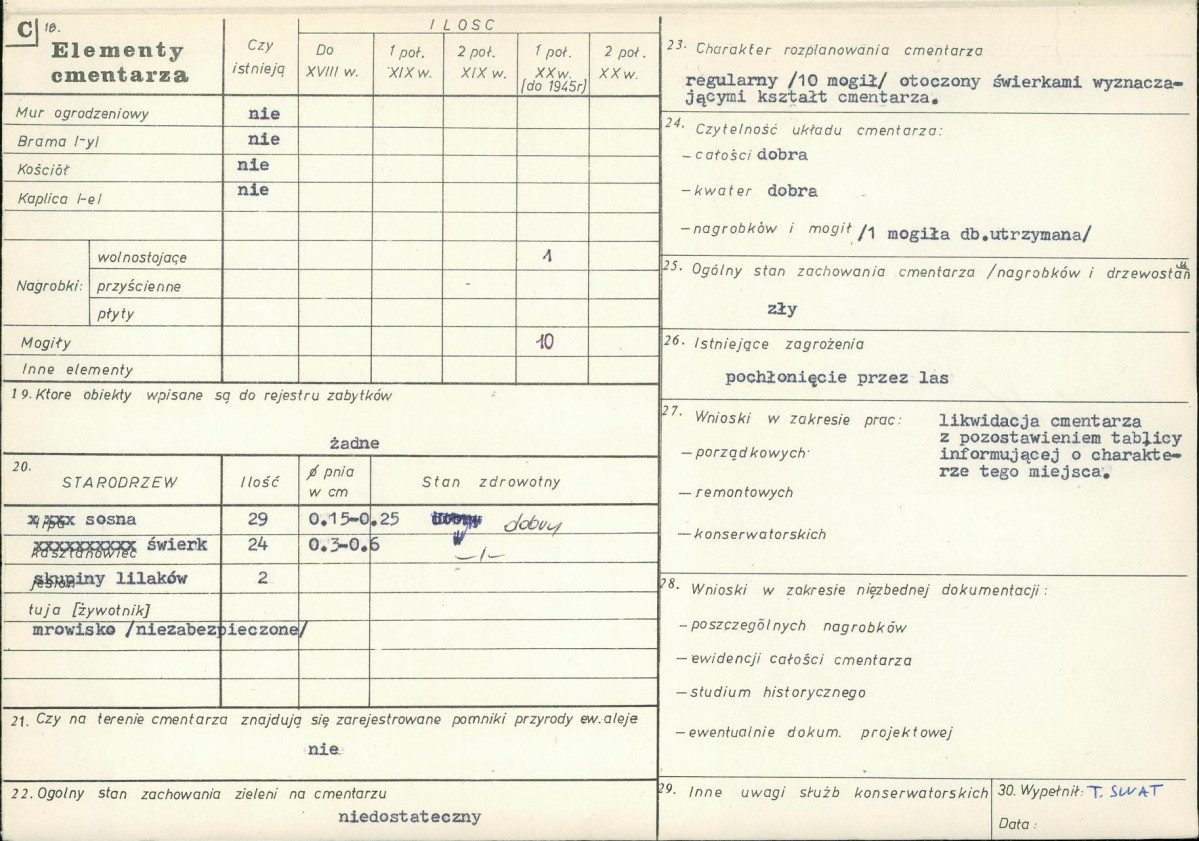 C 18.
Elementy
cmentarza
Czy
istnieją
ILOSC
Do
XVIII w.
1 poł.
XIX w.
2 poł.
XIX w.
1 poł.
XX w.
(do 1945r)
2 poł.
XX w.
Mur ogrodzeniowy nie
Brama /-y/ nie
Kościół nie
Kaplica /-e/ nie
Nagrobki:
wolnostojące 1
przyścienne -
płyty
Mogiły 10
Inne elementy
19. Ktore obiekty wpisane są do rejestru zabytków
żadne
20.
STARODRZEW Ilość ∅ pnia
w cm Stan zdrowotny
lipa x xxx sosna 29 0.15-0.25 dobry
kasztanowiec xxxxxxxxxx świerk 24 0.3-0.6 -"-
jesion skupiny lilaków 2
tuja [żywotnik]
mrowisko /niezabezpieczone/
21. Czy na terenie cmentarza znajdują się zarejestrowane pomniki przyrody ew. aleje
nie
22. Ogolny stan zachowania zieleni na cmentarzu
niedostateczny
23. Charakter rozplanowania cmentarza
regularny /10 mogił/ otoczony świerkami wyznacza-
jącymi kształt cmentarza.
24. Czytelność układu cmentarza:
- całości dobra
- kwater dobra
- nagrobków i mogił /1 mogiła db.utrzymana/
25. Ogólny stan zachowania cmentarza /nagrobków i drzewostan
zły
26. Istniejące zagrożenia
pochłonięcie przez las
27. Wnioski w zakresie prac: likwidacja cmentarza
z pozostawieniem tablicy
- porządkowych informującej o charakte-
rze tego miejsca.
- remontowych
- konserwatorskich
28. Wnioski w zakresie niezbędnej dokumentacji:
- poszczególnych nagrobków
- ewidencji całości cmentarza
- studium historycznego
- ewentualnie dokum. projektowej
29. Inne uwagi służb konserwatorskich
30. Wypełnił: T. SWAT
Data: